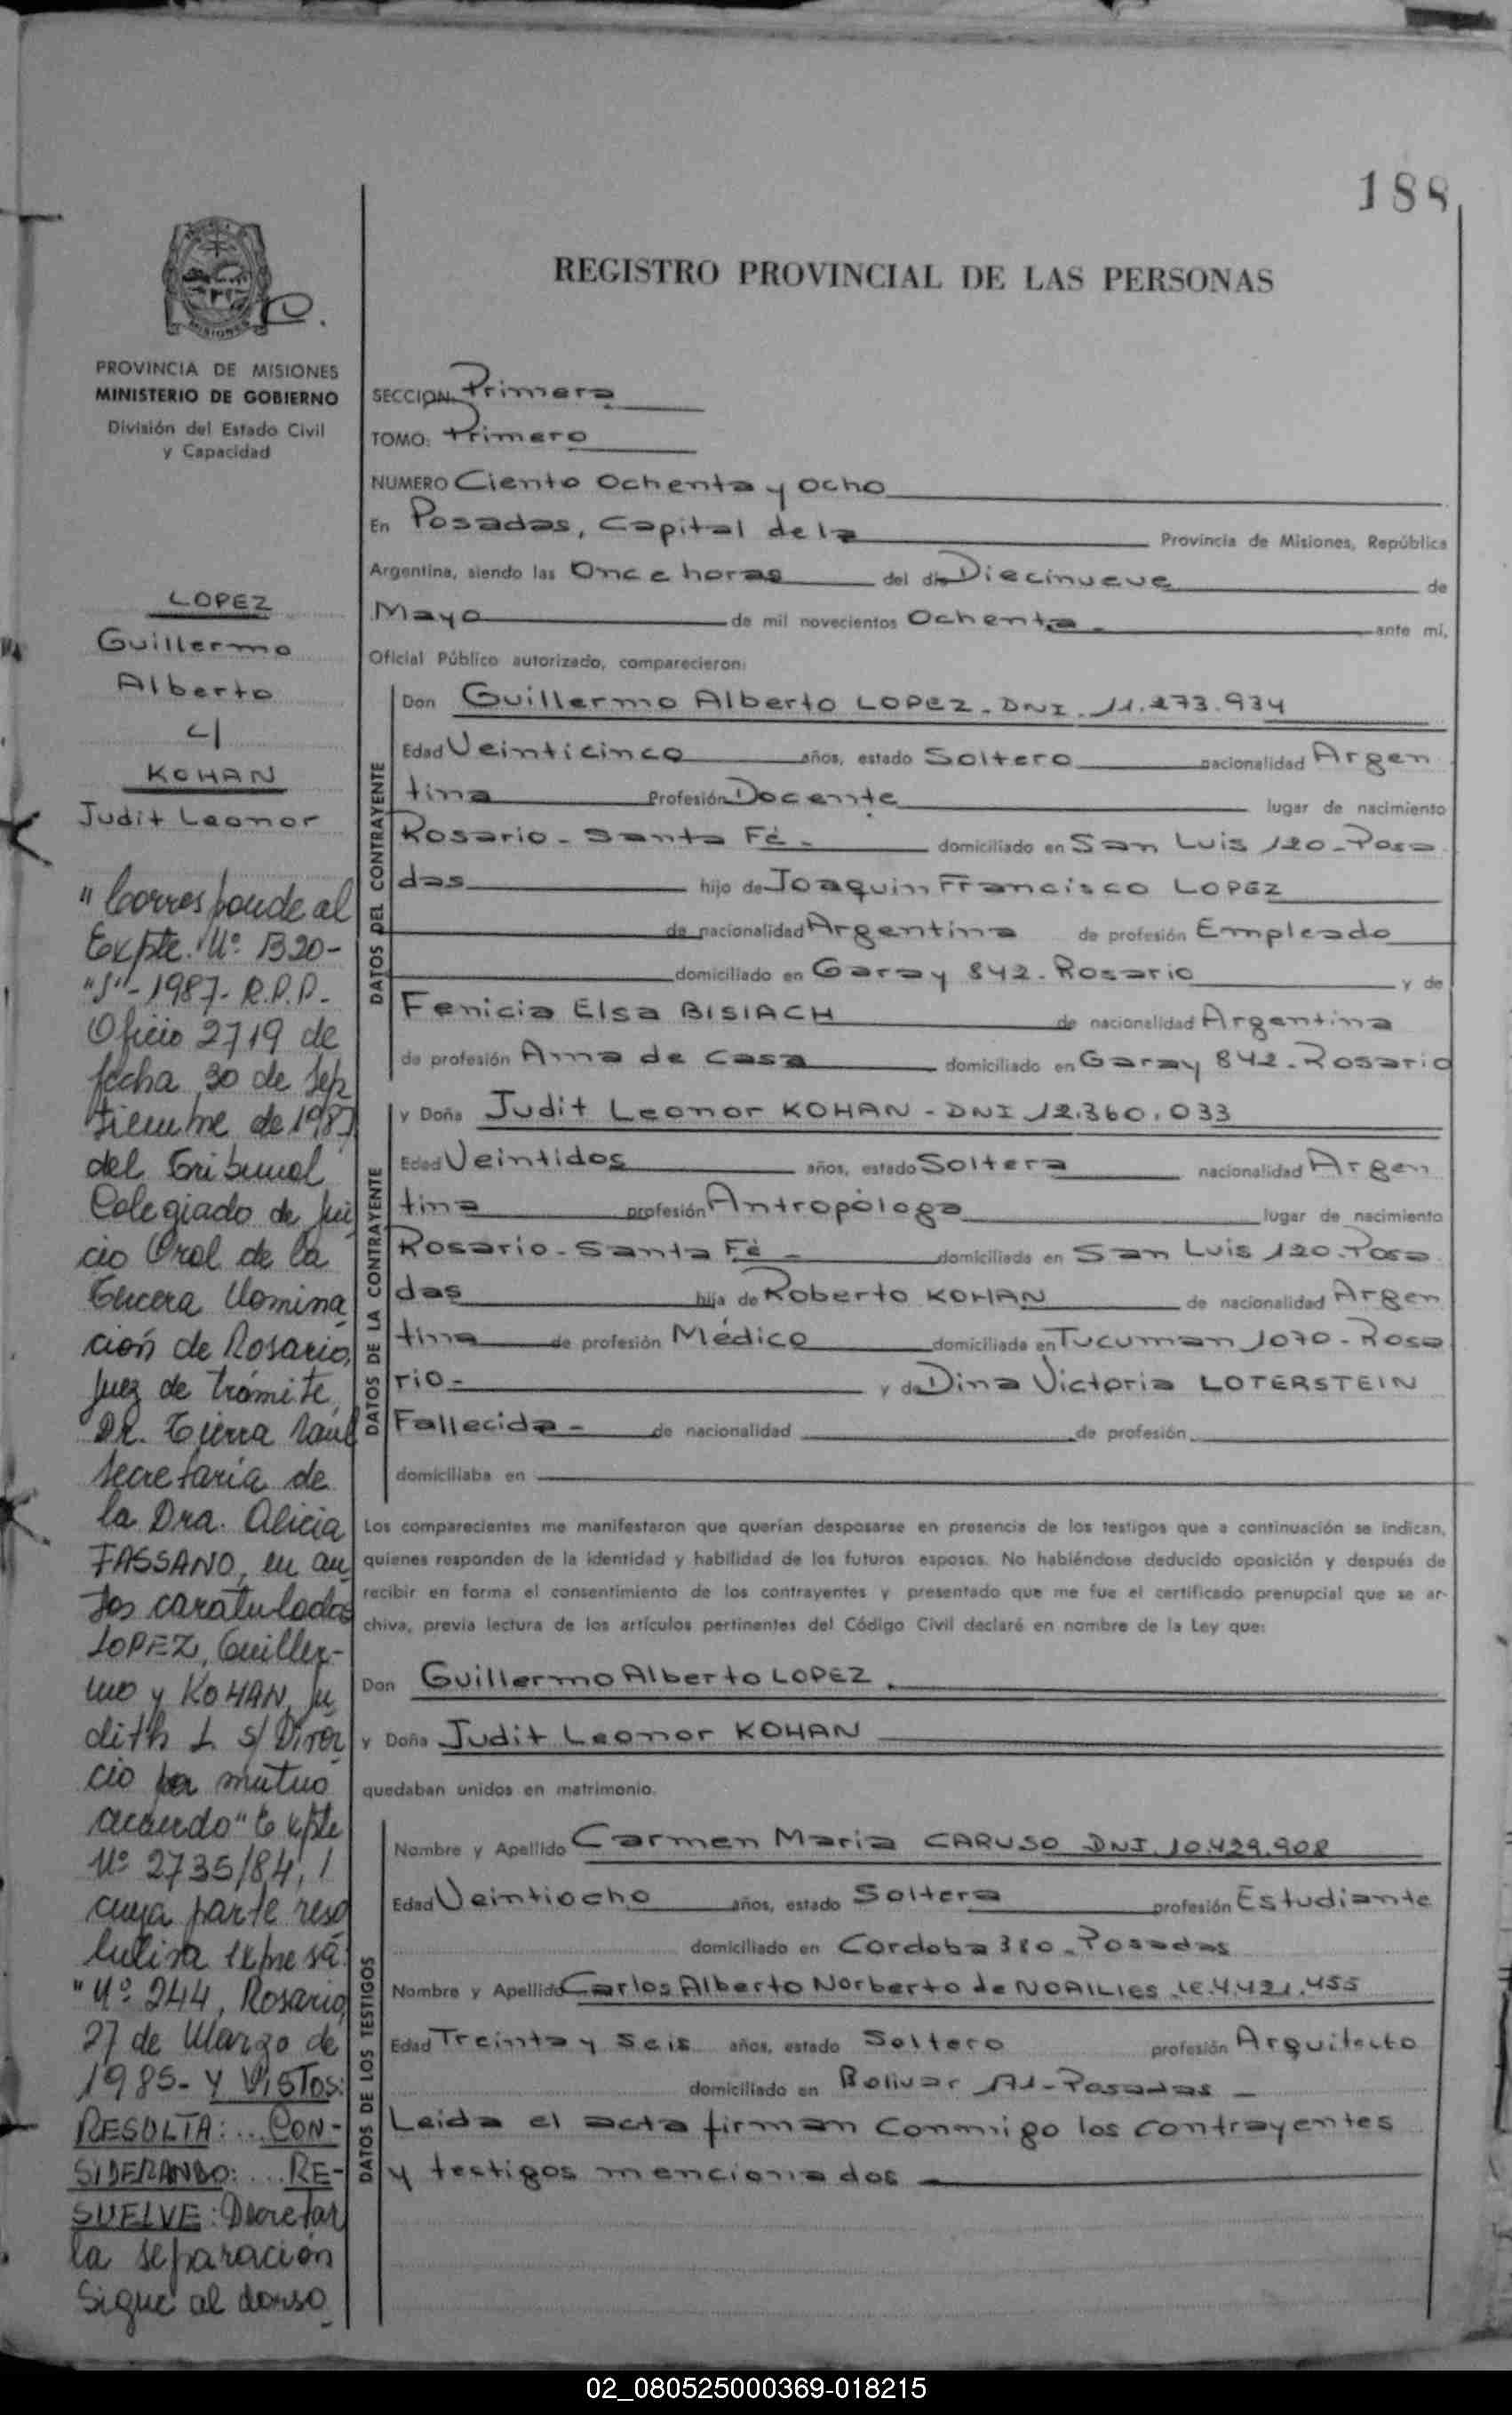 188
REGISTRO PROVINCIAL DE LAS PERSONAS
MISIONES
PROVINCIA DE MISIONES
MINISTERIO DE GOBIERNO
División del Estado Civil
y Capacidad
LOPEZ
Guillermo
Alberto
c/
KOHAN
Judit Leonor
"Corresponde al
Expte. Nº 1320-
"S"-1987- R.P.P.
Oficio 2719 de
fecha 30 de Sep
tiembre de 1987
del Tribunal
Colegiado de Jui
cio Oral de la
Tercera Nomina
ción de Rosario,
Juez de trámite,
Dr. Tierra Raúl
secretaría de
la Dra. Alicia
FASSANO, en au
tos caratulados
LOPEZ, Guiller-
mo y KOHAN, Ju
dith L. s/ Divor
cio por mutuo
acuerdo" Expte
Nº 2735/84,
cuya parte reso
lutiva expresa:
"Nº 244, Rosario,
27 de Marzo de
1985- Y VISTOS:
RESULTA: ... CON-
SIDERANDO: ... RE-
SUELVE: Decretar
la separación
Sigue al dorso
SECCION Primera
TOMO: Primero
NUMERO Ciento Ochenta y Ocho
En Posadas, Capital de la Provincia de Misiones, República
Argentina, siendo las Once horas del día Diecinueve de
Mayo de mil novecientos Ochenta.- ante mí,
Oficial Público autorizado, comparecieron:
DATOS DEL CONTRAYENTE
Don Guillermo Alberto LOPEZ - DNI. 11.273.934
Edad Veinticinco años, estado Soltero nacionalidad Argen
tina Profesión Docente lugar de nacimiento
Rosario - Santa Fé - domiciliado en San Luis 120 - Posa
das hijo de Joaquin Francisco LOPEZ
de nacionalidad Argentina de profesión Empleado
domiciliado en Garay 842 - Rosario y de
Fenicia Elsa BISIACH de nacionalidad Argentina
de profesión Ama de Casa domiciliado en Garay 842 - Rosario
DATOS DE LA CONTRAYENTE
y Doña Judit Leonor KOHAN - DNI 12.360.033
Edad Veintidos años, estado Soltera nacionalidad Argen
tina profesión Antropóloga lugar de nacimiento
Rosario - Santa Fé - domiciliada en San Luis 120 - Posa
das hija de Roberto KOHAN de nacionalidad Argen
tina de profesión Médico domiciliada en Tucuman 1070 - Rosa
rio - y de Dina Victoria LOTERSTEIN
Fallecida - de nacionalidad de profesión
domiciliaba en
Los comparecientes me manifestaron que querían desposarse en presencia de los testigos que a continuación se indican,
quienes responden de la identidad y habilidad de los futuros esposos. No habiéndose deducido oposición y después de
recibir en forma el consentimiento de los contrayentes y presentado que me fue el certificado prenupcial que se ar-
chiva, previa lectura de los artículos pertinentes del Código Civil declaré en nombre de la Ley que:
Don Guillermo Alberto LOPEZ
y Doña Judit Leonor KOHAN
quedaban unidos en matrimonio.
DATOS DE LOS TESTIGOS
Nombre y Apellido Carmen Maria CARUSO DNI. 10.429.908
Edad Veintiocho años, estado Soltera profesión Estudiante
domiciliado en Cordoba 380 - Posadas
Nombre y Apellido Carlos Alberto Norberto de NOAILLES LE. 4.421.455
Edad Treinta y Seis años, estado Soltero profesión Arquitecto
domiciliado en Bolivar - Posadas -
Leida el acta firman conmigo los contrayentes
y testigos mencionados
02_080525000369-018215